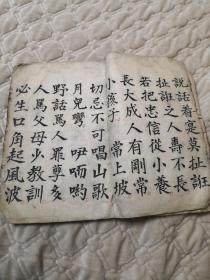 説話着寔莫扯誑
扯誑之人壽不長
若把忠信從小養
長大成人有剛常
小孩子 常上坡
切忌不可唱山歌
月兒彎 咿吶喲
野話罵人罪孽多
人罵父母少教訓
必生口角起風波